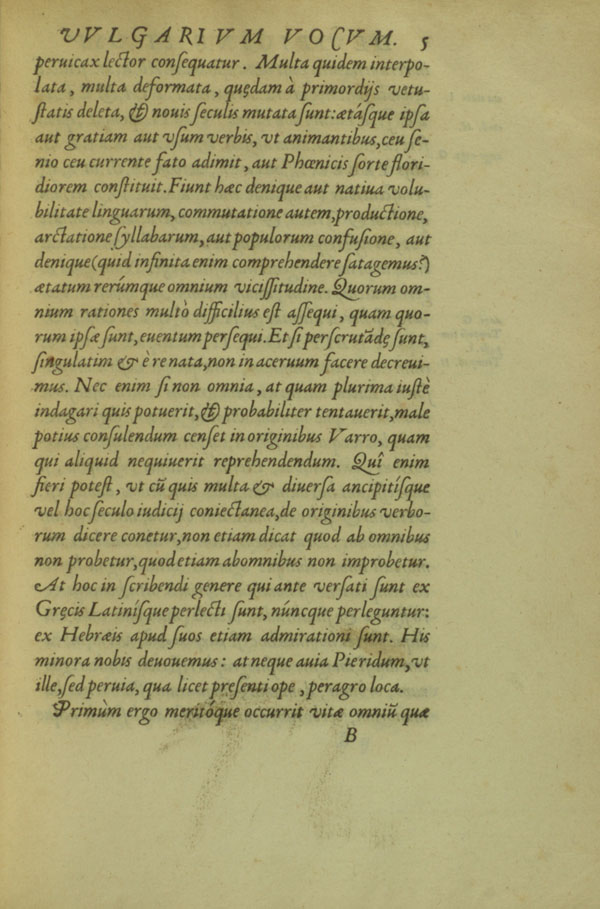 VVLGARIVM VOCVM. 5
peruicax lector consequatur. Multa quidem interpo-
lata, multa deformata, quędam à primordijs vetu-
statis deleta, & nouis seculis mutata sunt: ætásque ipsa
aut gratiam aut vsum verbis, vt animantibus, ceu se-
nio ceu currente fato adimit, aut Phœnicis sorte flori-
diorem constituit. Fiunt hæc denique aut natiua volu-
bilitate linguarum, commutatione autem, productione,
arctatione syllabarum, aut populorum confusione, aut
denique (quid infinita enim comprehendere satagemus?)
ætatum rerúmque omnium vicissitudine. Quorum om-
nium rationes multò difficilius est assequi, quam quo-
rum ipsæ sunt, euentum persequi. Et si perscrutādę sunt,
singulatim & è re nata, non in aceruum facere decreui-
mus. Nec enim si non omnia, at quam plurima iustè
indagari quis potuerit, & probabiliter tentauerit, male
potius consulendum censet in originibus Varro, quam
qui aliquid nequiuerit reprehendendum. Quî enim
fieri potest, vt cū quis multa & diuersa ancipitísque
vel hoc seculo iudicij coniectanea, de originibus verbo-
rum dicere conetur, non etiam dicat quod ab omnibus
non probetur, quod etiam abomnibus non improbetur.
At hoc in scribendi genere qui ante versati sunt ex
Gręcis Latinísque perlecti sunt, núncque perleguntur:
ex Hebræis apud suos etiam admirationi sunt. His
minora nobis deuouemus: at neque auia Pieridum, vt
ille, sed peruia, qua licet pręsenti ope, peragro loca.
Primùm ergo meritóque occurrit vitæ omniū quæ
B